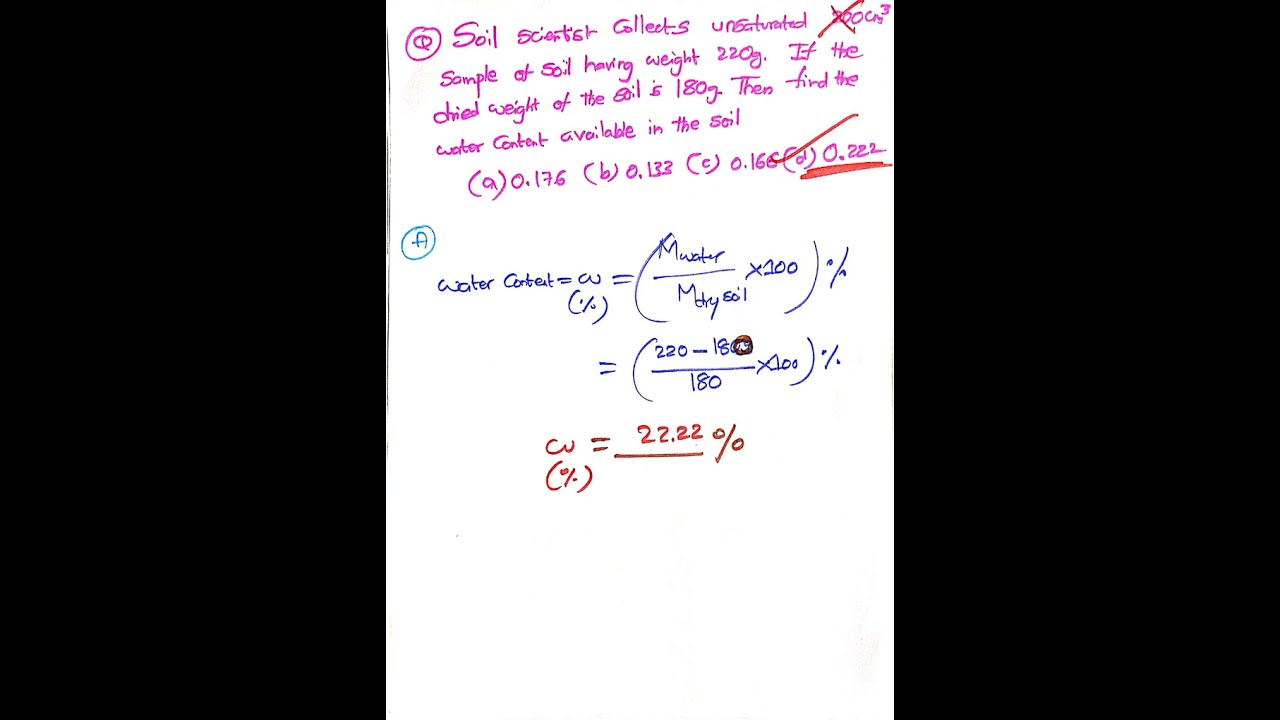 Q Soil scientist collects unsaturated 200cm³
Sample of soil having weight 220g. If the
dried weight of the soil is 180g. Then find the
water content available in the soil
(a) 0.176 (b) 0.133 (c) 0.166 (d) 0.222
A
water content = w = (Mwater / Mdry soil × 100) %
(%)
= (220 - 180 / 180 × 100) %
w = 22.22 %
(%)